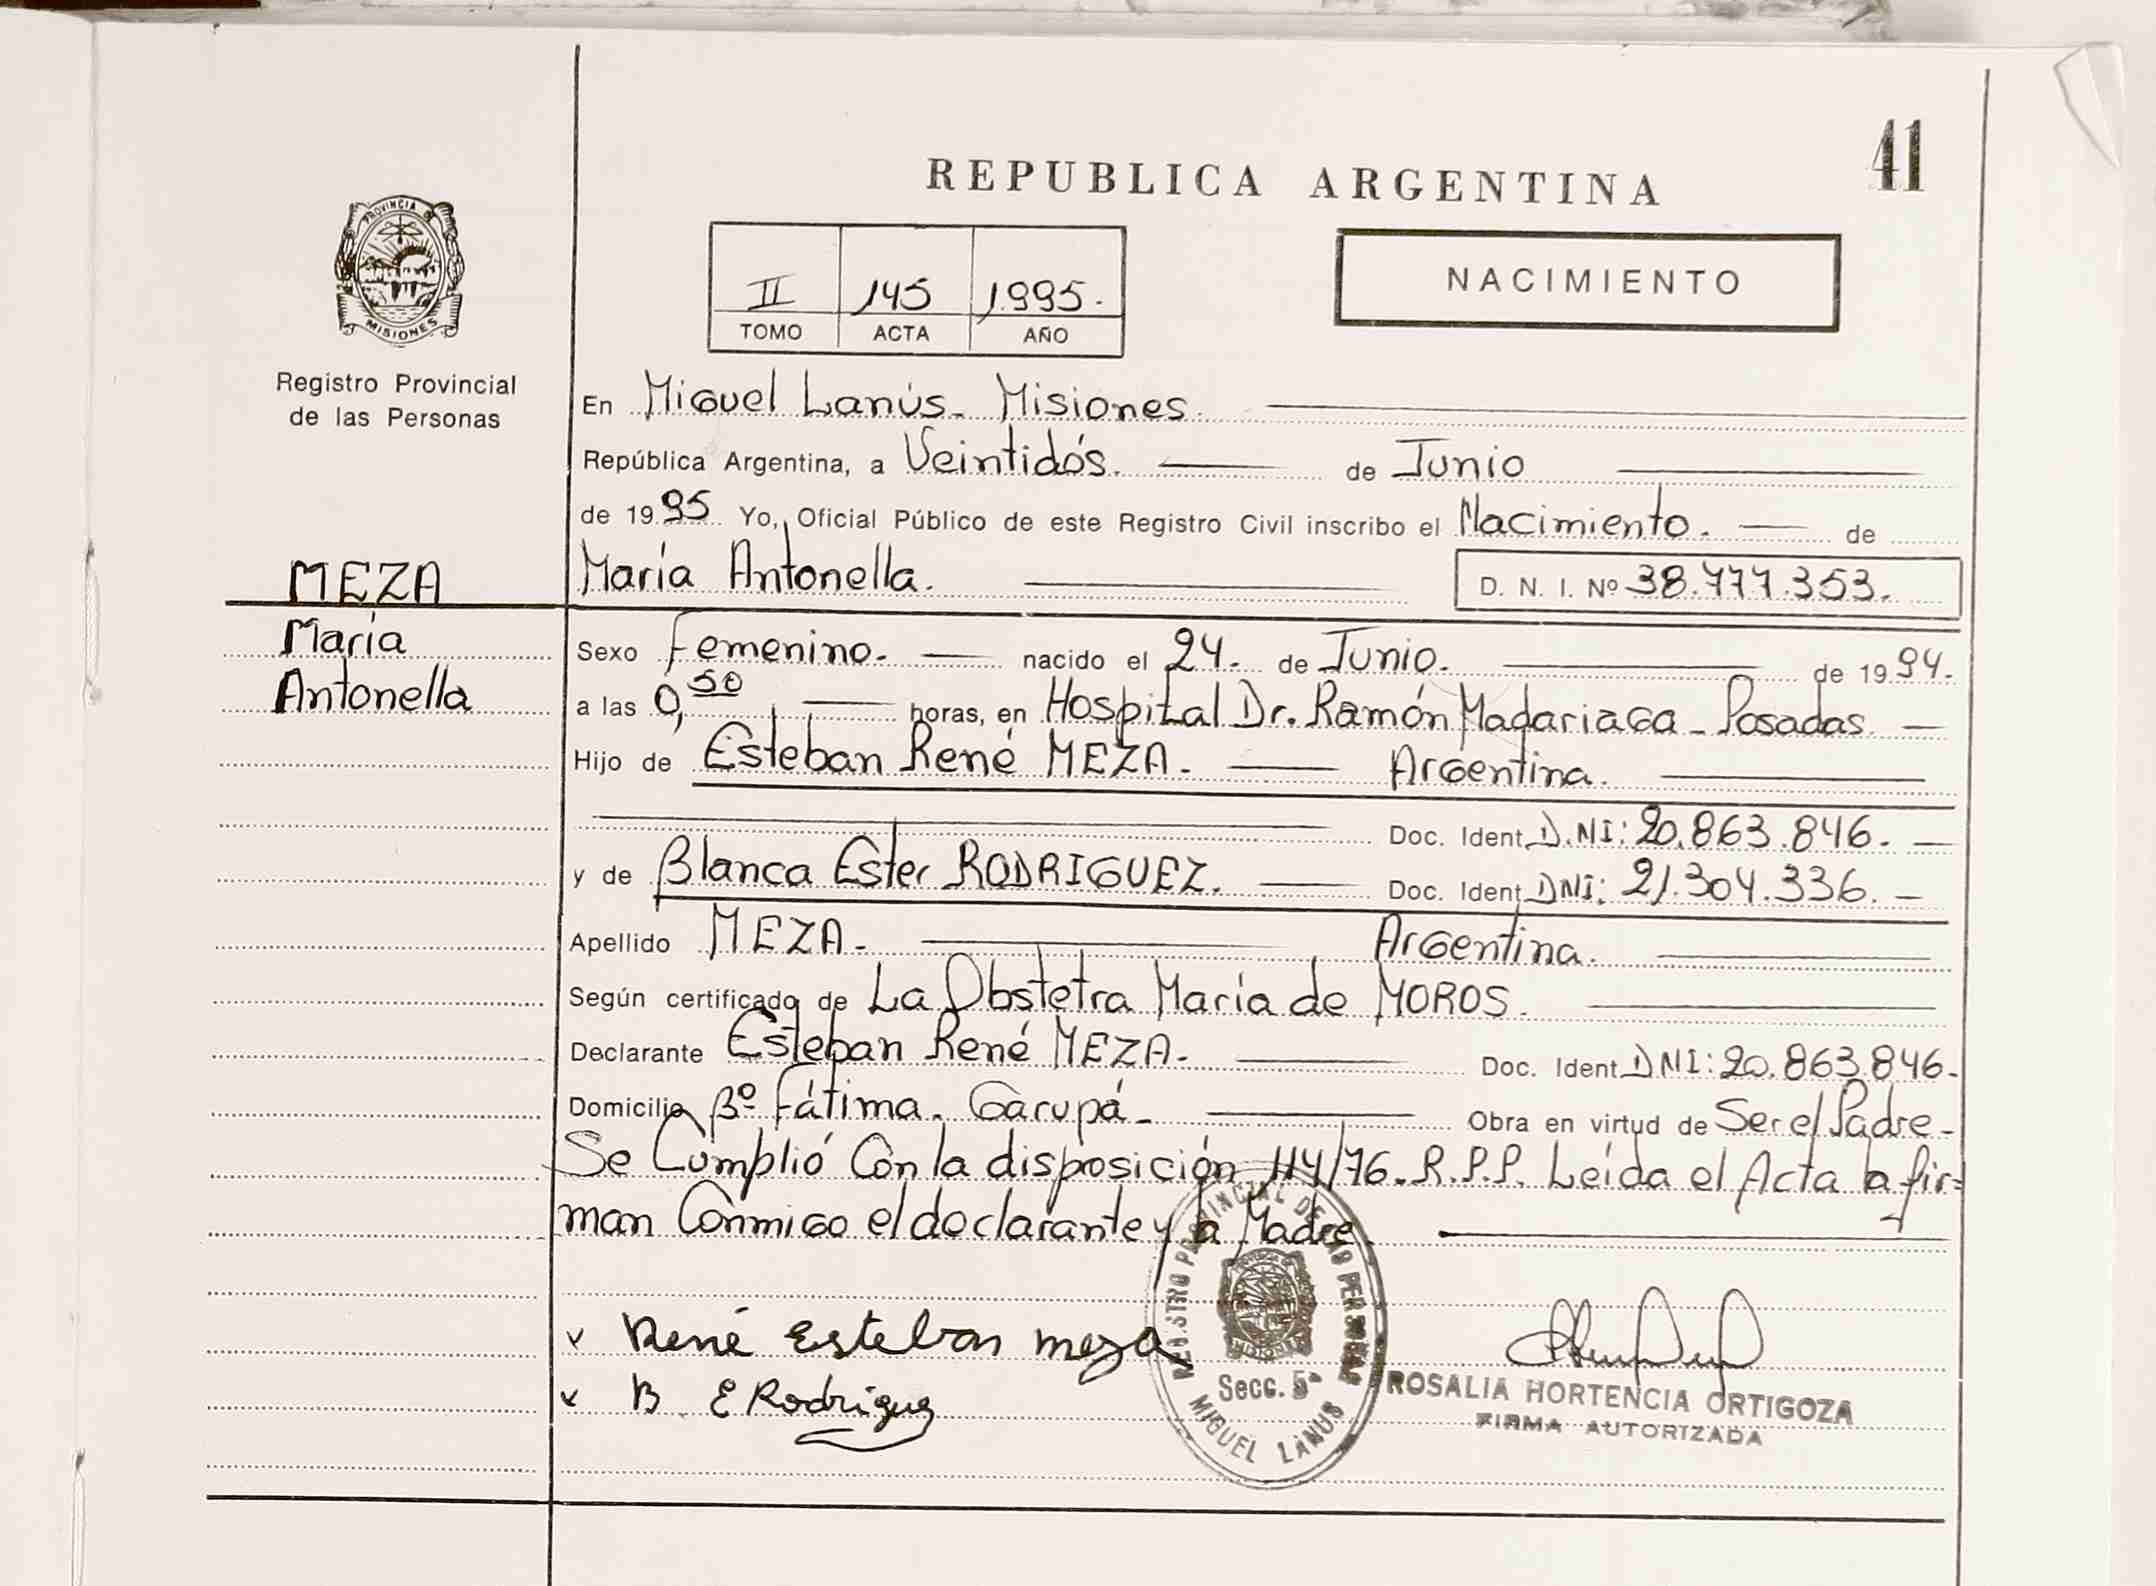 41
REPUBLICA ARGENTINA
PROVINCIA DE MISIONES
II 145 1995.
TOMO ACTA AÑO
NACIMIENTO
Registro Provincial
de las Personas
En Miguel Lanús - Misiones.
República Argentina, a Veintidós. de Junio
de 1995 Yo, Oficial Público de este Registro Civil inscribo el Nacimiento. de
MEZA María Antonella. D. N. I. Nº 38.777.353.
María Sexo Femenino. nacido el 24. de Junio. de 1994.
Antonella a las 0,50 horas, en Hospital Dr. Ramón Madariaga - Posadas
Hijo de Esteban René MEZA. Argentina.
Doc. Ident. D.NI: 20.863.846.
y de Blanca Ester RODRIGUEZ. Doc. Ident. DNI: 21.304.336.
Apellido MEZA. Argentina.
Según certificado de La Obstetra María de MOROS.
Declarante Esteban René MEZA. Doc. Ident. DNI: 20.863.846.
Domicilio Bº Fátima. Garupá. Obra en virtud de Ser el Padre
Se Cumplió Con la disposición 114/76. R.P.P. Leída el Acta la fir=
man Conmigo el declarante y la Madre.
x René Esteban meza
x B E Rodriguez
REGISTRO PROVINCIAL DE LAS PERSONAS
MISIONES
Secc. 5ª
MIGUEL LANUS
ROSALIA HORTENCIA ORTIGOZA
FIRMA AUTORIZADA